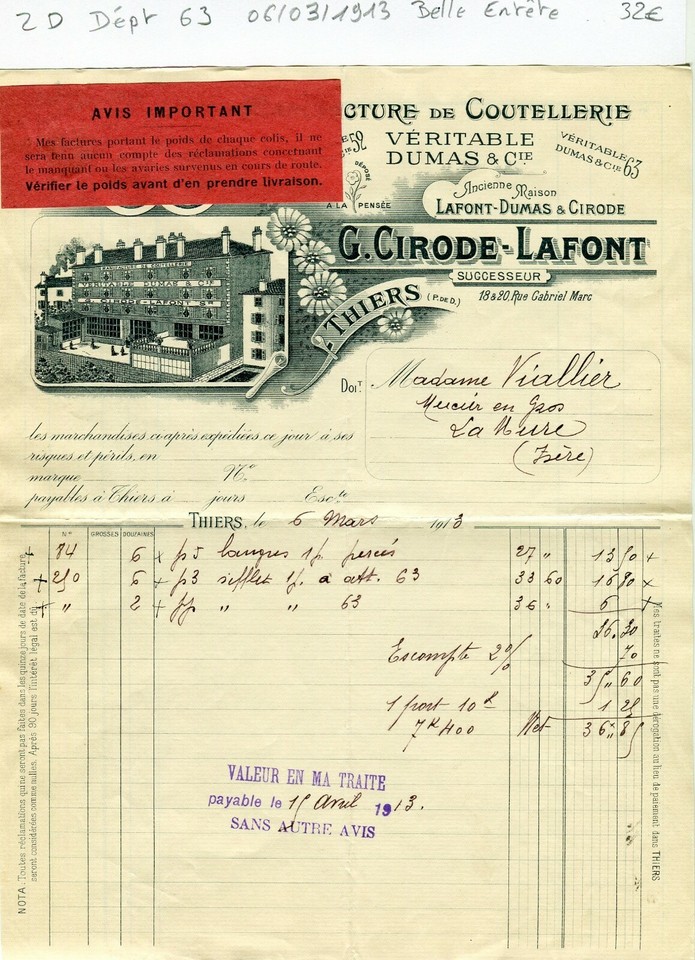 2D Dépt 63 06/03/1913 Belle Entête 32€
AVIS IMPORTANT
Mes factures portant le poids de chaque colis, il ne
sera tenu aucun compte des réclamations concernant
le manquant ou les avaries survenus en cours de route.
Vérifier le poids avant d'en prendre livraison.
CTURE DE COUTELLERIE
VÉRITABLE
DUMAS & CIE
52
VÉRITABLE
DUMAS & CIE 63
DÉPOSÉ
A LA PENSÉE
Ancienne Maison
LAFONT-DUMAS & CIRODE
G. CIRODE-LAFONT
SUCCESSEUR
THIERS (P. DE D.)
18 & 20, Rue Gabriel Marc
MANUFACTURE DE COUTELLERIE
VÉRITABLE DUMAS & CIE
G. CIRODE-LAFONT SR
DOIT
Madame Viallier
Mercier en Gros
La Mure
(Isère)
les marchandises ci-après expédiées ce jour à ses
risques et périls, en
marque No
payables à Thiers à jours Escte
THIERS, le 6 Mars 1913
No GROSSES DOUZAINES
+ 74 6 x p5 1p. percés 27 " 13 50 x
+ 250 6 x p3 sifflet 1p. a att. 63 33 60 16 80 x
+ " 2 + " " 63 36 " 6 x
36.30
Escompte 2% 70
35 " 60
1 port 10k 1 25
7k400 Net 36 " 85
VALEUR EN MA TRAITE
payable le 15 Avril 1913.
SANS AUTRE AVIS
NOTA. Toutes réclamations qui ne seront pas faites dans les quinze jours de date de la facture
seront considérées comme nulles. Après 90 jours l'intérêt légal est dû.
Mes traites ne sont pas une dérogation au lieu de paiement dans THIERS